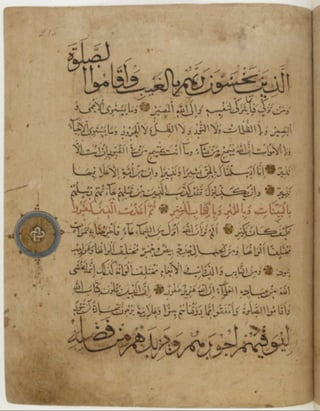 الذين يخشون ربهم بالغيب واقاموا الصلوة
ومن تزكى فانما يتزكى لنفسه والى الله المصير وما يستوى الاعمى و
البصير ولا الظلمات ولا النور ولا الظل ولا الحرور وما يستوى الاحياء
ولا الاموات ان الله يسمع من يشاء وما انت بمسمع من فى القبور ان انت الا
نذير انا ارسلناك بالحق بشيرا ونذيرا وان من امة الا خلا فيها
نذير وان يكذبوك فقد كذب الذين من قبلهم جاءتهم رسلهم
بالبينات وبالزبر وبالكتاب المنير ثم اخذت الذين كفروا
فكيف كان نكير الم تر ان الله انزل من السماء ماء فاخرجنا به ثمرات
مختلفا الوانها ومن الجبال جدد بيض وحمر مختلف الوانها وغرابيب
سود ومن الناس والدواب والانعام مختلف الوانه كذلك انما يخشى
الله من عباده العلماء ان الله عزيز غفور ان الذين يتلون كتاب الله
واقاموا الصلوة وانفقوا مما رزقناهم سرا وعلانية يرجون تجارة لن تبور
ليوفيهم اجورهم ويزيدهم من فضله